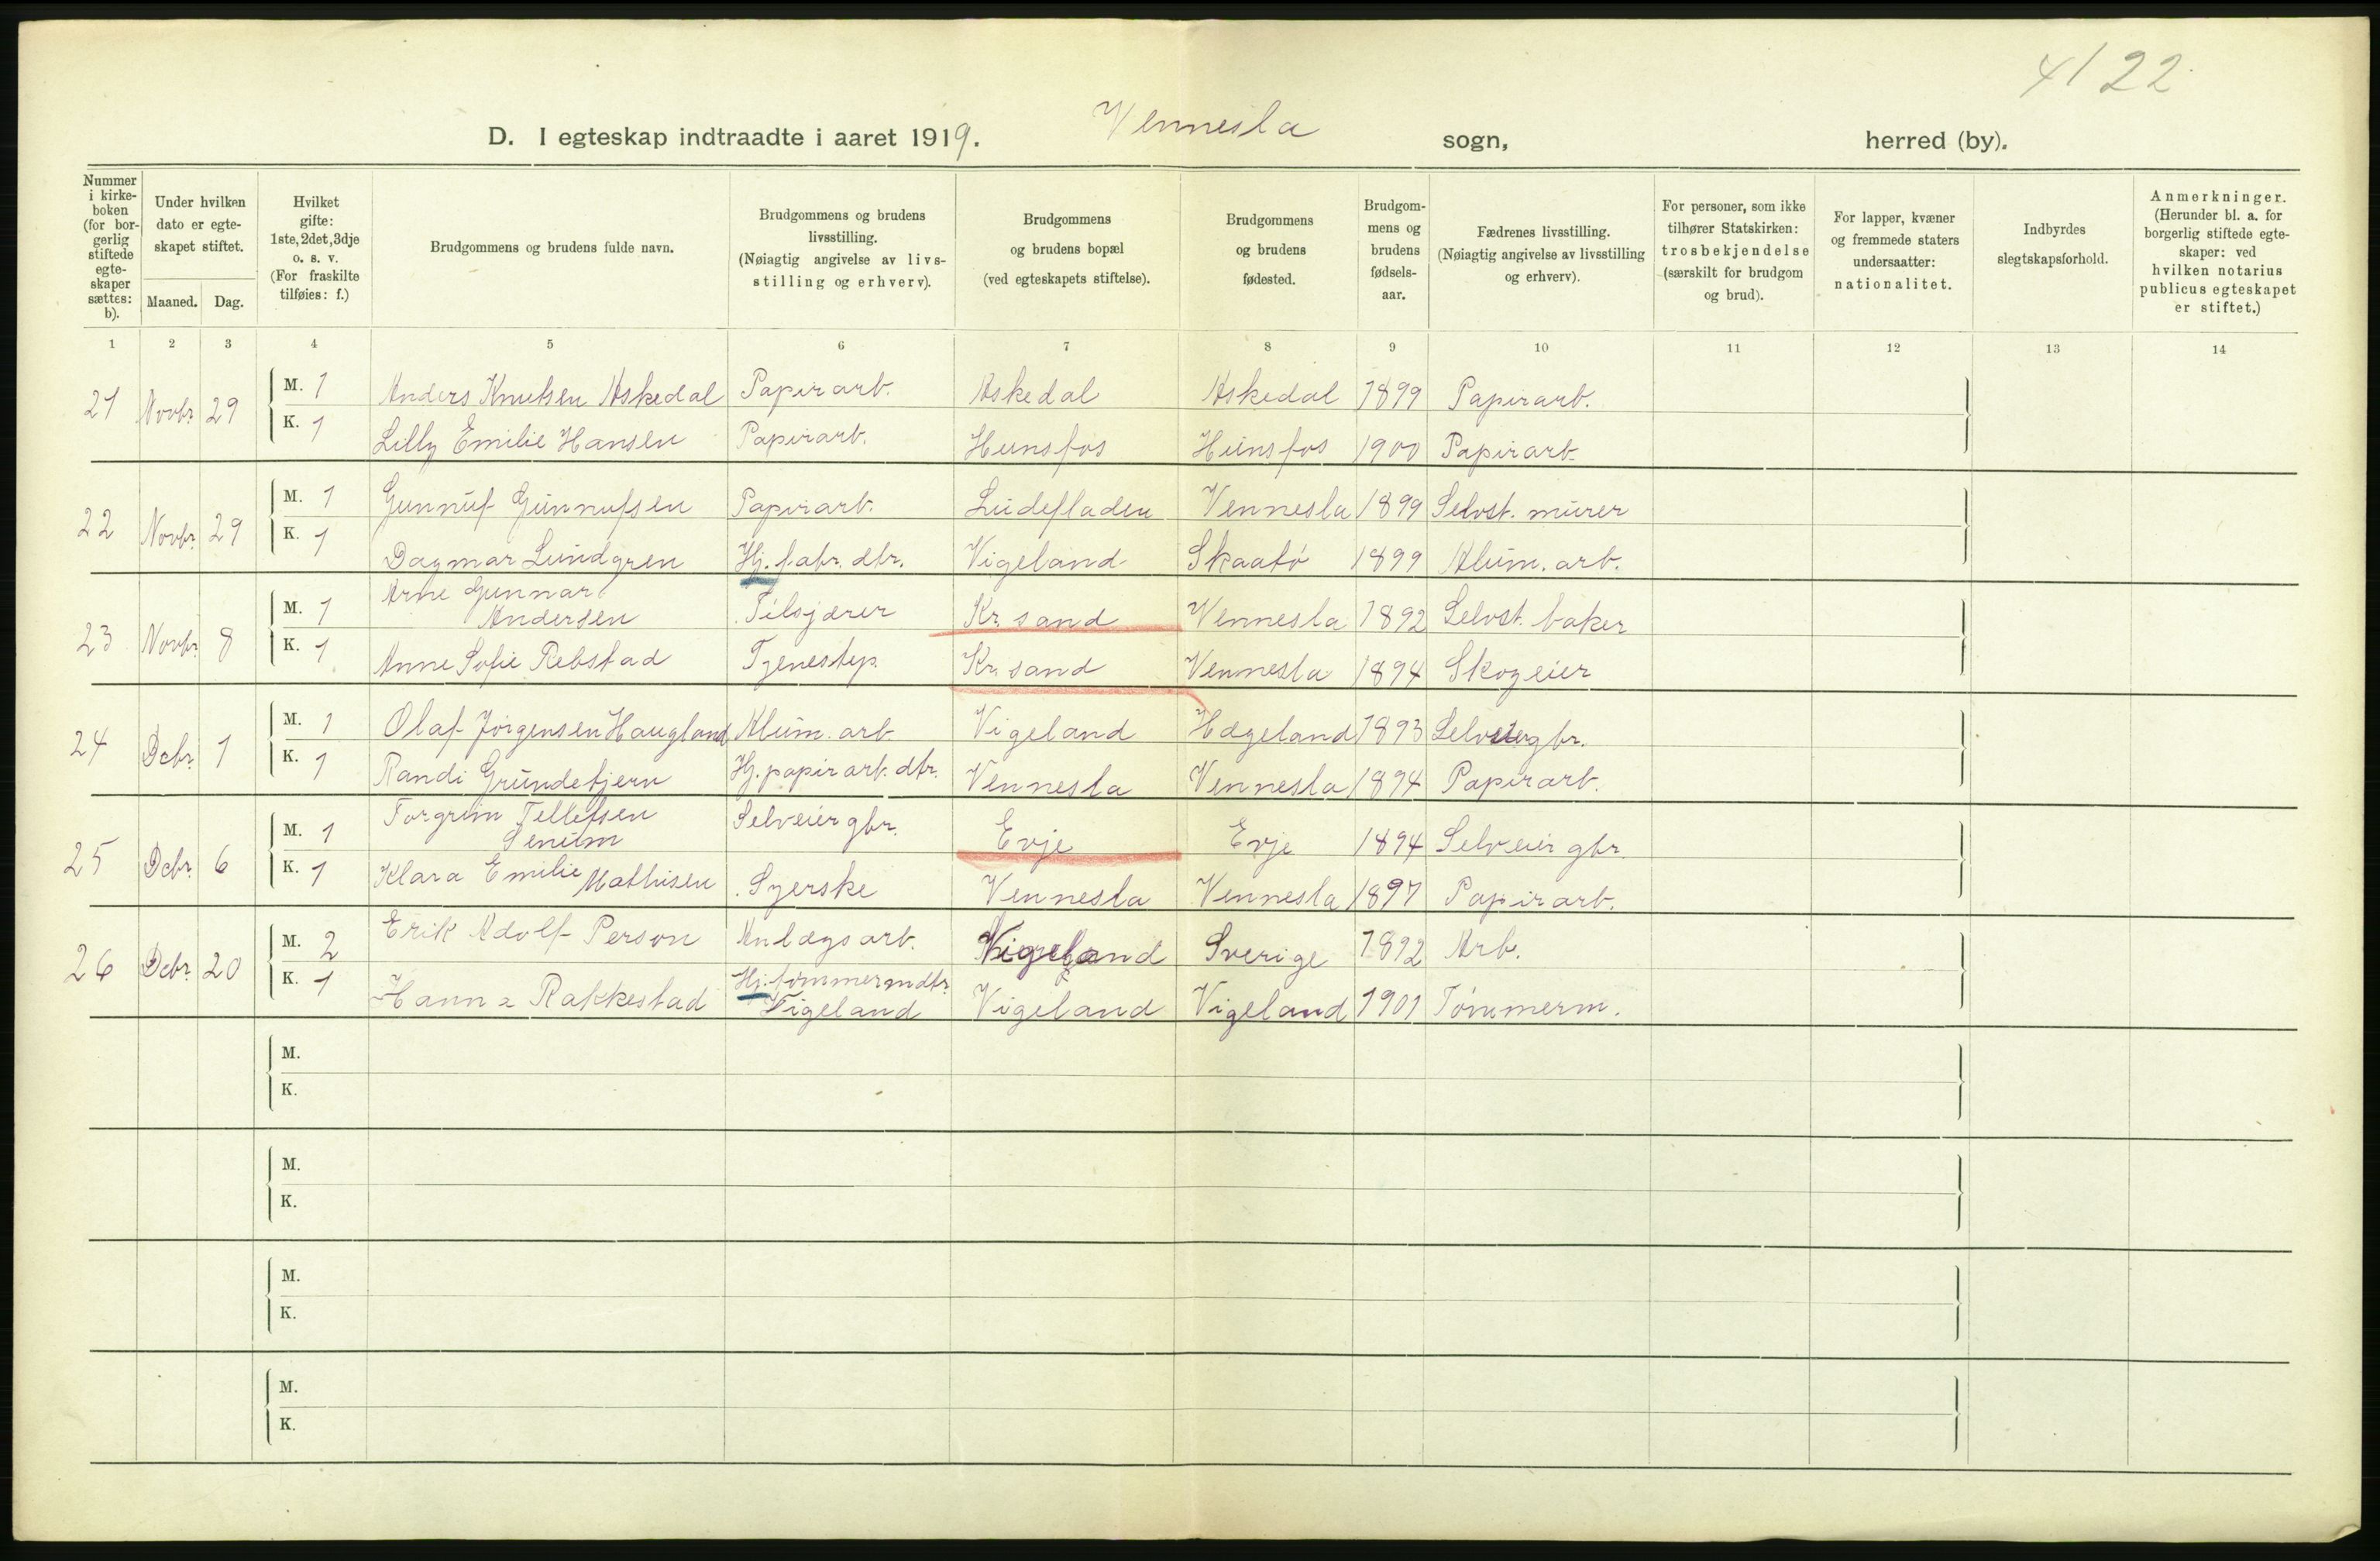 4122
D. I egteskap indtraadte i aaret 1919. Vennesla sogn, herred (by).
Nummer i kirke-boken (for bor-gerlig stiftede egte-skaper sættes: b).
Under hvilken dato er egte-skapet stiftet.
Maaned. Dag.
Hvilket gifte: 1ste, 2det, 3dje o. s. v. (For fraskilte tilføies: f.)
Brudgommens og brudens fulde navn.
Brudgommens og brudens livsstilling. (Nøiagtig angivelse av livs-stilling og erhverv).
Brudgommens og brudens bopæl (ved egteskapets stiftelse).
Brudgommens og brudens fødested.
Brudgom-mens og brudens fødsels-aar.
Fædrenes livsstilling. (Nøiagtig angivelse av livsstilling og erhverv).
For personer, som ikke tilhører Statskirken: trosbekjendelse (særskilt for brudgom og brud).
For lapper, kvæner og fremmede staters undersaatter: nationalitet.
Indbyrdes slegtskapsforhold.
Anmerkninger. (Herunder bl. a. for borgerlig stiftede egte-skaper: ved hvilken notarius publicus egteskapet er stiftet.)
1 2 3 4 5 6 7 8 9 10 11 12 13 14
21 Novbr. 29 M. 1 Anders Knutsen Askedal Papirarb. Askedal Askedal 1899 Papirarb.
K. 1 Lilly Emilie Hansen Papirarb. Hunsfos Hunsfos 1900 Papirarb.
22 Novbr. 29 M. 1 Gunnuf Gunnufsen Papirarb. Lindefladen Vennesla 1899 Selvst. murer
K. 1 Dagmar Lundgren Hj. fabr. dtr. Vigeland Skaatø 1899 Alum. arb.
23 Novbr. 8 M. 1 Arne Gunnar
Andersen Filsjærer Kr. sand Vennesla 1892 Selvst. baker
K. 1 Anne Sofie Rebstad Tjenestep. Kr. sand Vennesla 1894 Skogeier
24 Debr. 1 M. 1 Olaf Jørgensen Haugland Alum. arb Vigeland Hægeland 1893 Selveiergbr.
K. 1 Randi Grundetjern Hj. papirarb. dtr. Vennesla Vennesla 1894 Papirarb.
25 Debr. 6 M. 1 Torgrim Tellefsen
Senum Selveiergbr. Evje Evje 1894 Selveiergbr.
K. 1 Klara Emilie Mathisen Syerske Vennesla Vennesla 1897 Papirarb.
26 Debr. 20 M. 2 Erik Adolf Person Anlægsarb. Vigeland Sverige 1892 Arb.
K. 1 Hanna Rakkestad Hj. tømmermdtr.
Vigeland Vigeland Vigeland 1901 Tømmerm.
M.
K.
M.
K.
M.
K.
M.
K.